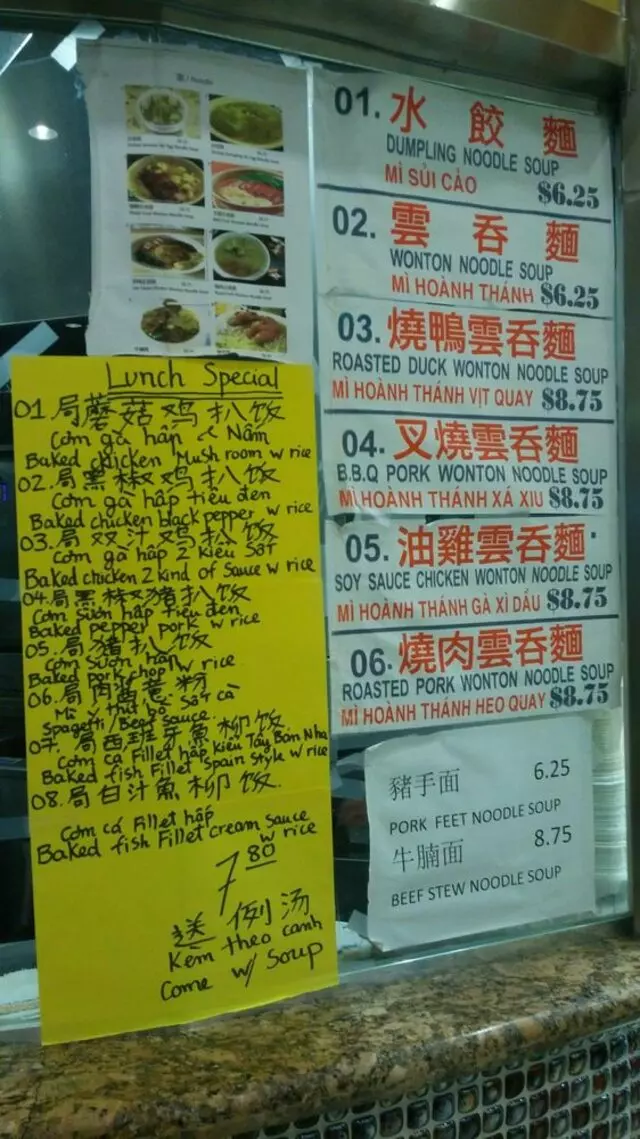 麵 / Noodle
Lunch Special
01 局蘑菇鸡扒饭
Cơm gà hấp & Nấm
Baked chicken Mushroom w rice
02. 局黑椒鸡扒饭
Cơm gà hấp tiêu đen
Baked chicken black pepper w rice
03. 局双汁鸡扒饭
Cơm gà hấp 2 kiểu Sốt
Baked chicken 2 kind of Sauce w rice
04. 局黑椒豬扒饭
Cơm Sườn hấp tiêu đen
Baked pepper pork w rice
05. 局豬扒饭
Cơm Sườn hấp
Baked pork chop w rice
06. 局肉酱意粉
Mì ý thịt bò Sốt cà
Spagetti/Beef sauce
07. 局西班牙魚柳饭
Cơm cá Fillet hấp kiểu Tây Ban Nha
Baked fish Fillet Spain Style w rice
08. 局白汁魚柳饭
Cơm cá Fillet hấp
Baked fish Fillet cream Sauce
w rice
7 80
送例汤
Kèm theo canh
Come w/ Soup
01. 水餃麵
DUMPLING NOODLE SOUP
MÌ SỦI CẢO $6.25
02. 雲吞麵
WONTON NOODLE SOUP
MÌ HOÀNH THÁNH $6.25
03. 燒鴨雲吞麵
ROASTED DUCK WONTON NOODLE SOUP
MÌ HOÀNH THÁNH VỊT QUAY $8.75
04. 叉燒雲吞麵
B.B.Q PORK WONTON NOODLE SOUP
MÌ HOÀNH THÁNH XÁ XIU $8.75
05. 油雞雲吞麵
SOY SAUCE CHICKEN WONTON NOODLE SOUP
MÌ HOÀNH THÁNH GÀ XÌ DẦU $8.75
06. 燒肉雲吞麵
ROASTED PORK WONTON NOODLE SOUP
MÌ HOÀNH THÁNH HEO QUAY $8.75
豬手面 6.25
PORK FEET NOODLE SOUP
牛腩面 8.75
BEEF STEW NOODLE SOUP